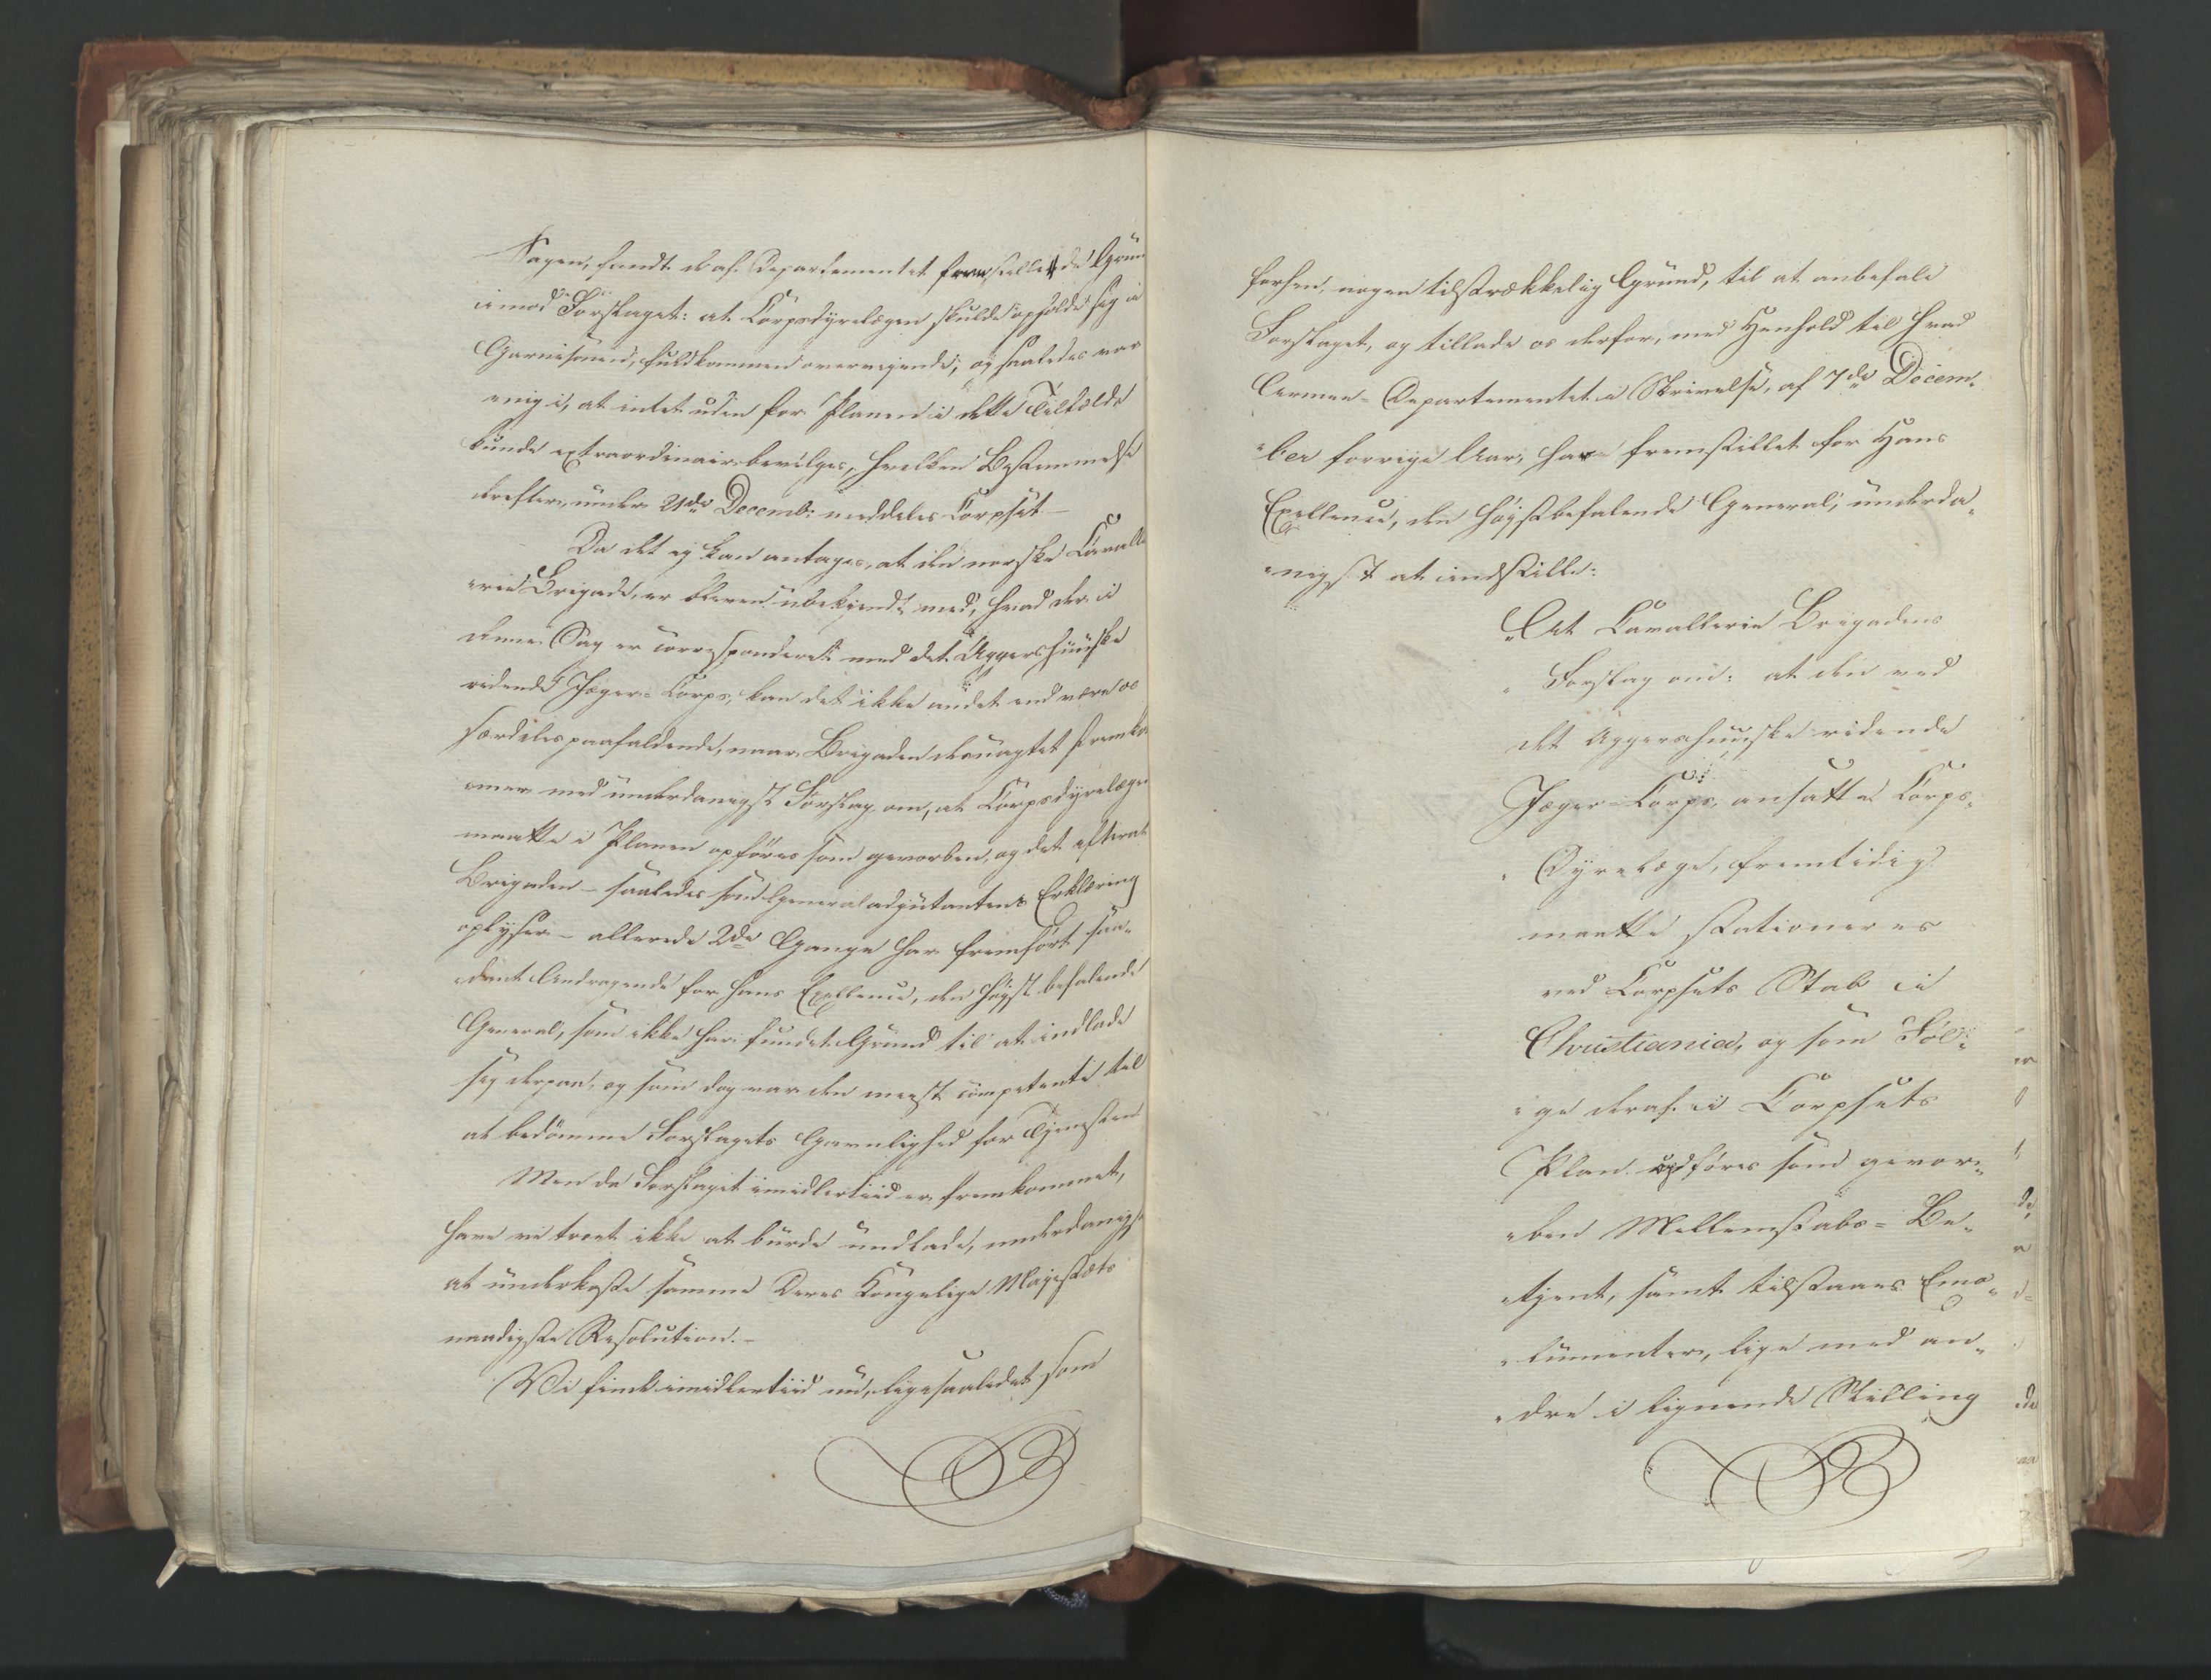 Sagen, fandt de af Departementet fremstillede Grun
imod Forslaget: at Corpsdyrelægen skulde opholde sig i
Garnisonen, fuldkommen overveiende, og saaledes var
enig i, at intet uden for Planen i dette Tilfælde
kunde extraordinair bevilges, hvilken Bestemmelse
derefter, under 21de Decemb: meddeles Corpset –
Da det ej kan antages, at den norske Cavall
erie Brigade, er bleven ubekjendt med, hvad der i
denne Sag er corresponderet med det Aggershuuske
ridende Jæger-Corps, kan det ikke andet end være os
særdeles paafaldende, naar Brigaden desuagtet fremko
mmer med underdanigst Forslag om, at Corpsdyrelægen
maatte i Planen opføres som gevorben, og det efterat
Brigaden – saaledes som Generaladjutantens Erklæring
oplyser – allerede 2de Gange har fremført saa-
dant Andragende for Hans Exellence, den høystbefalende
General, som ikke har fundet Grund til at indlade
sig derpaa, og som dog var den meest competente til
at bedømme Forslagets Gavnlighed for Tjenesten
Men da Forslaget imidlertiid er fremkommet,
have vi troet ikke at burde undlade, underdanigst
at underkaste samme Deres Kongelige Majestæts
naadigste Resolution. –
Vi finde imidlertiid nu, ligesaalidet som
forhen, nogen tilstrækkelig Grund, til at anbefale
Forslaget, og tillade os derfor, med Henhold til hvad
Armee-Departementet i Skrivelse, af 7de Decem-
ber forrige Aar, har fremstillet for Hans
Exellence, den høystbefalende General, underda-
nigst at indstille:
"At Cavallerie Brigadens
" Forslag om: at den ved
det Aggershuuske ridende
Jæger-Corps, ansatte Corps-
" Dyrelæge, fremtidig
maatte stationeres
ved Corpsets Stab i
Christiania, og som Føl-
ge deraf i Corpsets
Plan opføres som gevor-
ben Mellemstabs-Be-
tjent, samt tilstaaes Emo-
lumenter, lige med an-
dre i lignende Stilling